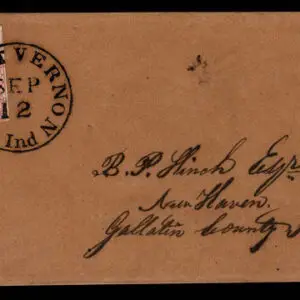 T VERNON
SEP
12
Ind
B. P. Hinch Esqr
New Haven.
Gallatin County